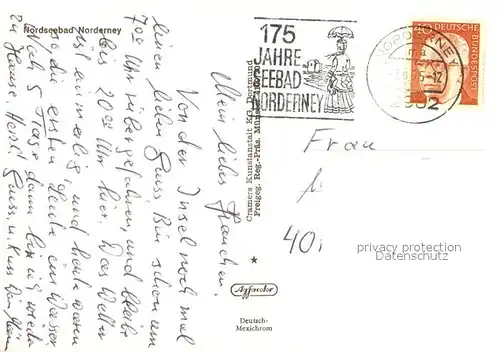 Nordseebad Norderney
Mein liebes Hanchen.
Von der Insel noch mal
einen lieben Gruss. Bin schon um
7.00 Uhr rübergefahren, und bleibe
bis 20.00 Uhr hier. Das Wetter
ist einmalig, und heute waren
die ersten Leute im Wasser.
Noch 5 Tage dann bin ich wieder
zu Hause. Herzl. Gruss, u. Kuss Dein
Cramers Kunstanstalt KG, Dortmund
Freigeg. Reg.-Präs. Münster
175
JAHRE
SEEBAD
NORDERNEY
NORDERNEY
40
DEUTSCHE
BUNDESPOST
Frau
40
privacy protection
Datenschutz
Agfacolor
Deutsch-
Mexichrom